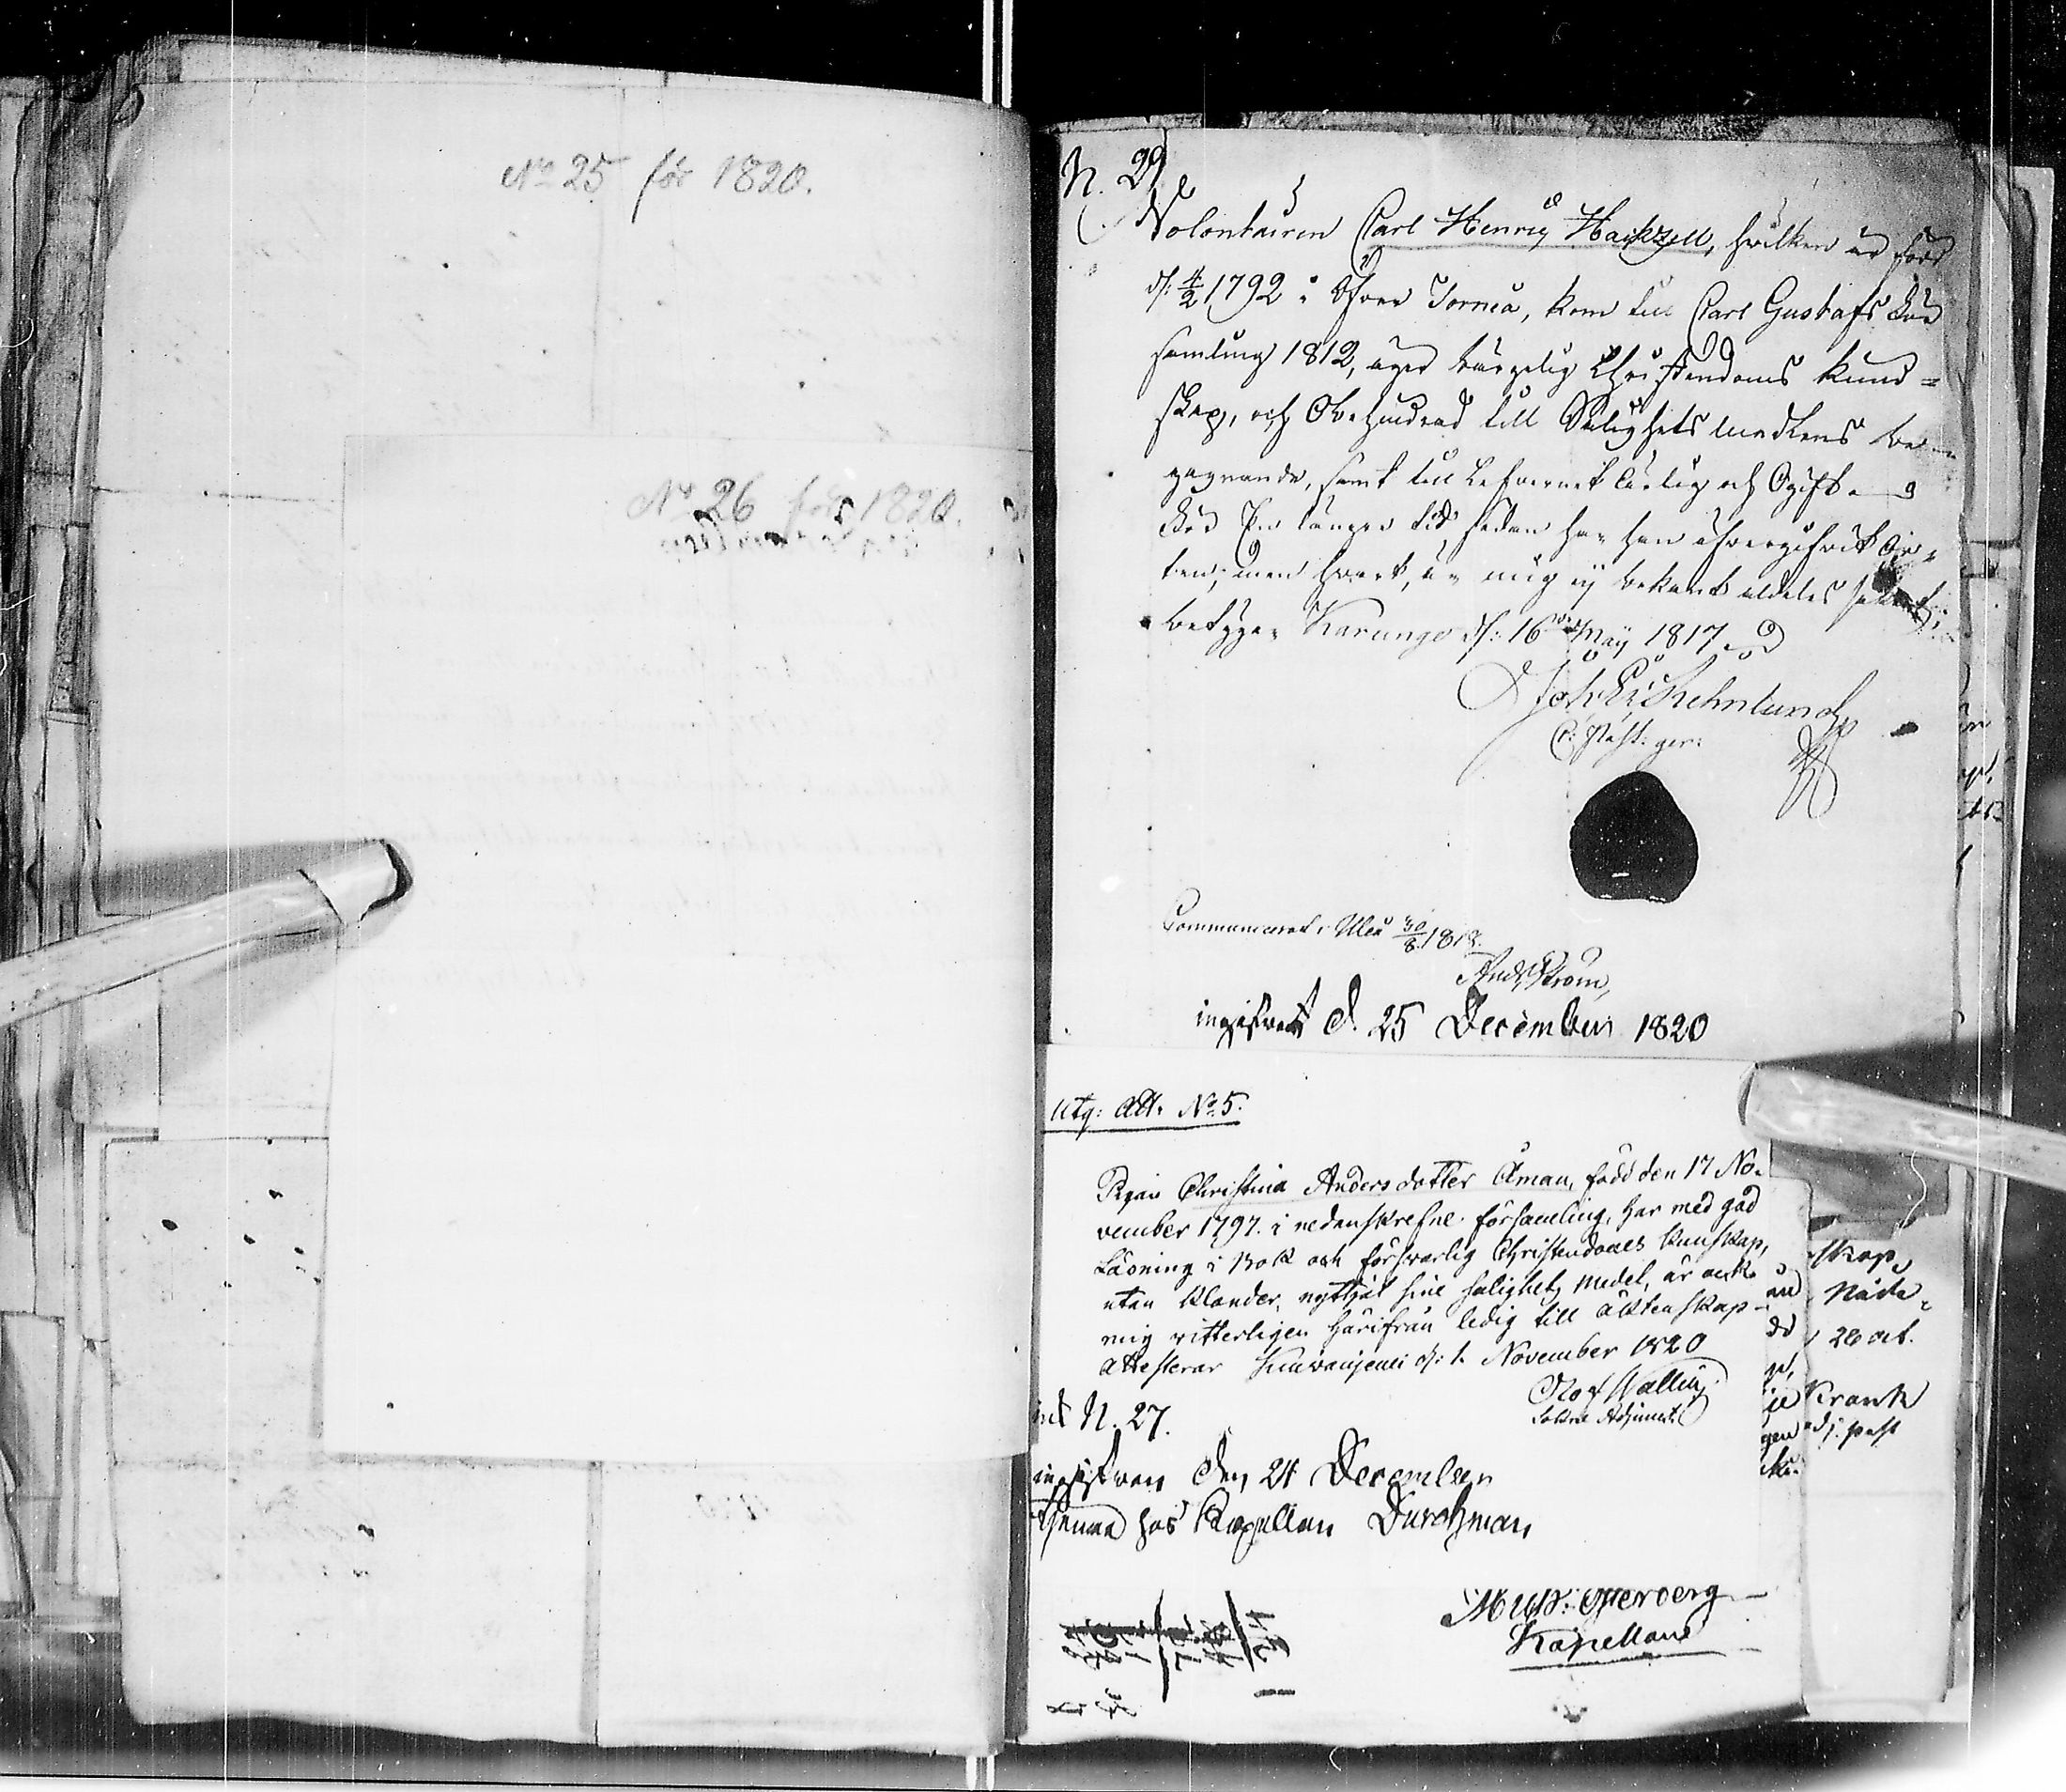 No 25 för 1820.
No 26 för 1820.
N. 29
Volontairen Carl Henric Hackzell, hvilken är född
d: 4/2 1792 i Öfver Torneå, kom till Carl Gustafs För
samling 1812, äger började Christendoms kund=
skap, och Obehindrad till Salighets medlens be-
gagnande, samt till Lefvernet ärlig och Ogift.
För En längre tid sedan har han öfvergifvit Or-
ten, men hvart, är mig ej bekant aldeles
betygar Karungi d: 16 Maij 1817
Joh. Er. Rehnlund
C: Past: ger:
Communicerat i Uleå 30/8 1818.
And. Ström,
ingifvet d. 25 December 1820
Utg: Att. No 5.
Pigan Christina Andersdotter Åman, född den 17 No-
vember 1797. i nedanskrefne församling, har med god
Läsning i Bok och försvarlig Christendoms kunskap,
utan klander, nyttjat sine salighets medel, är ock
mig vitterligen härifrån ledig till äktenskap-
attesterar Kuivaniemi d: 1. November 1820
Wallin
Sokne Adjunct
int N. 27.
ingifven den 24 December
tjenar hos Kapellan Durchman
Kapellan
skap,
Nåde-
26 oct.
Krank
adj. past